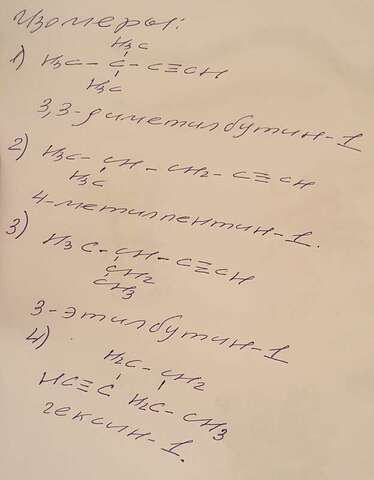 Изомеры:
H₃C
1) H₃C - C - C≡CH
H₃C
3,3-диметилбутин-1
2) H₃C - CH - CH₂ - C≡CH
H₃C
4-метилпентин-1.
3) H₃C - CH - C≡CH
CH₂
CH₃
3-этилбутин-1
4) H₂C - CH₂
HC≡C H₂C - CH₃
гексин-1.